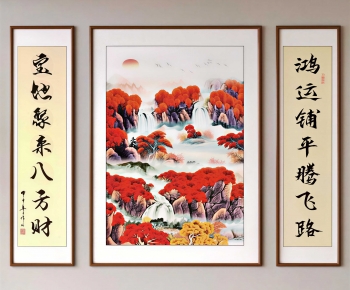 鸿运铺平腾飞路
宝地聚来八方财